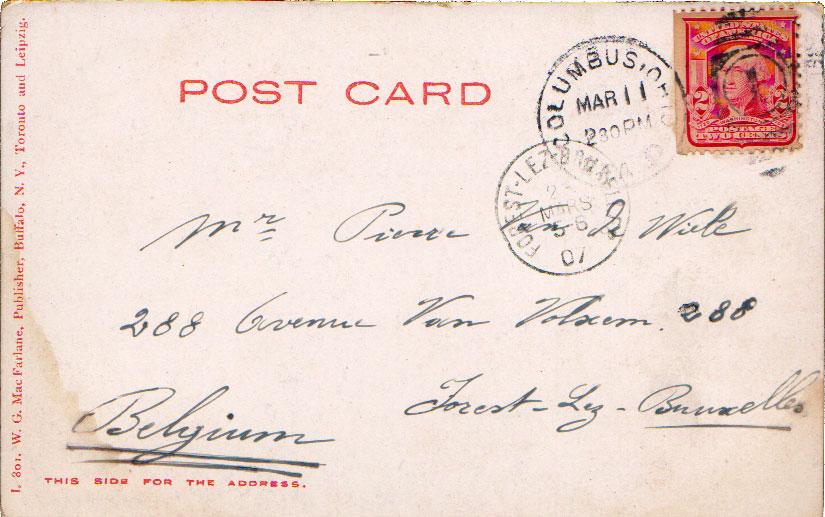 POST CARD
COLUMBUS, OHIO
MAR 11
2 30 PM
UNITED STATES
OF AMERICA
2 2
WASHINGTON
POSTAGE
TWO CENTS
FOREST-LEZ-BRUXELLES
MARS
5-6
07
Mr Pierre Van de Wiele
288 Avenue Van Volxem. 288
Forest-Lez-Bruxelles
Belgium
THIS SIDE FOR THE ADDRESS.
I. 801. W. G. MacFarlane, Publisher, Buffalo, N. Y., Toronto and Leipzig.